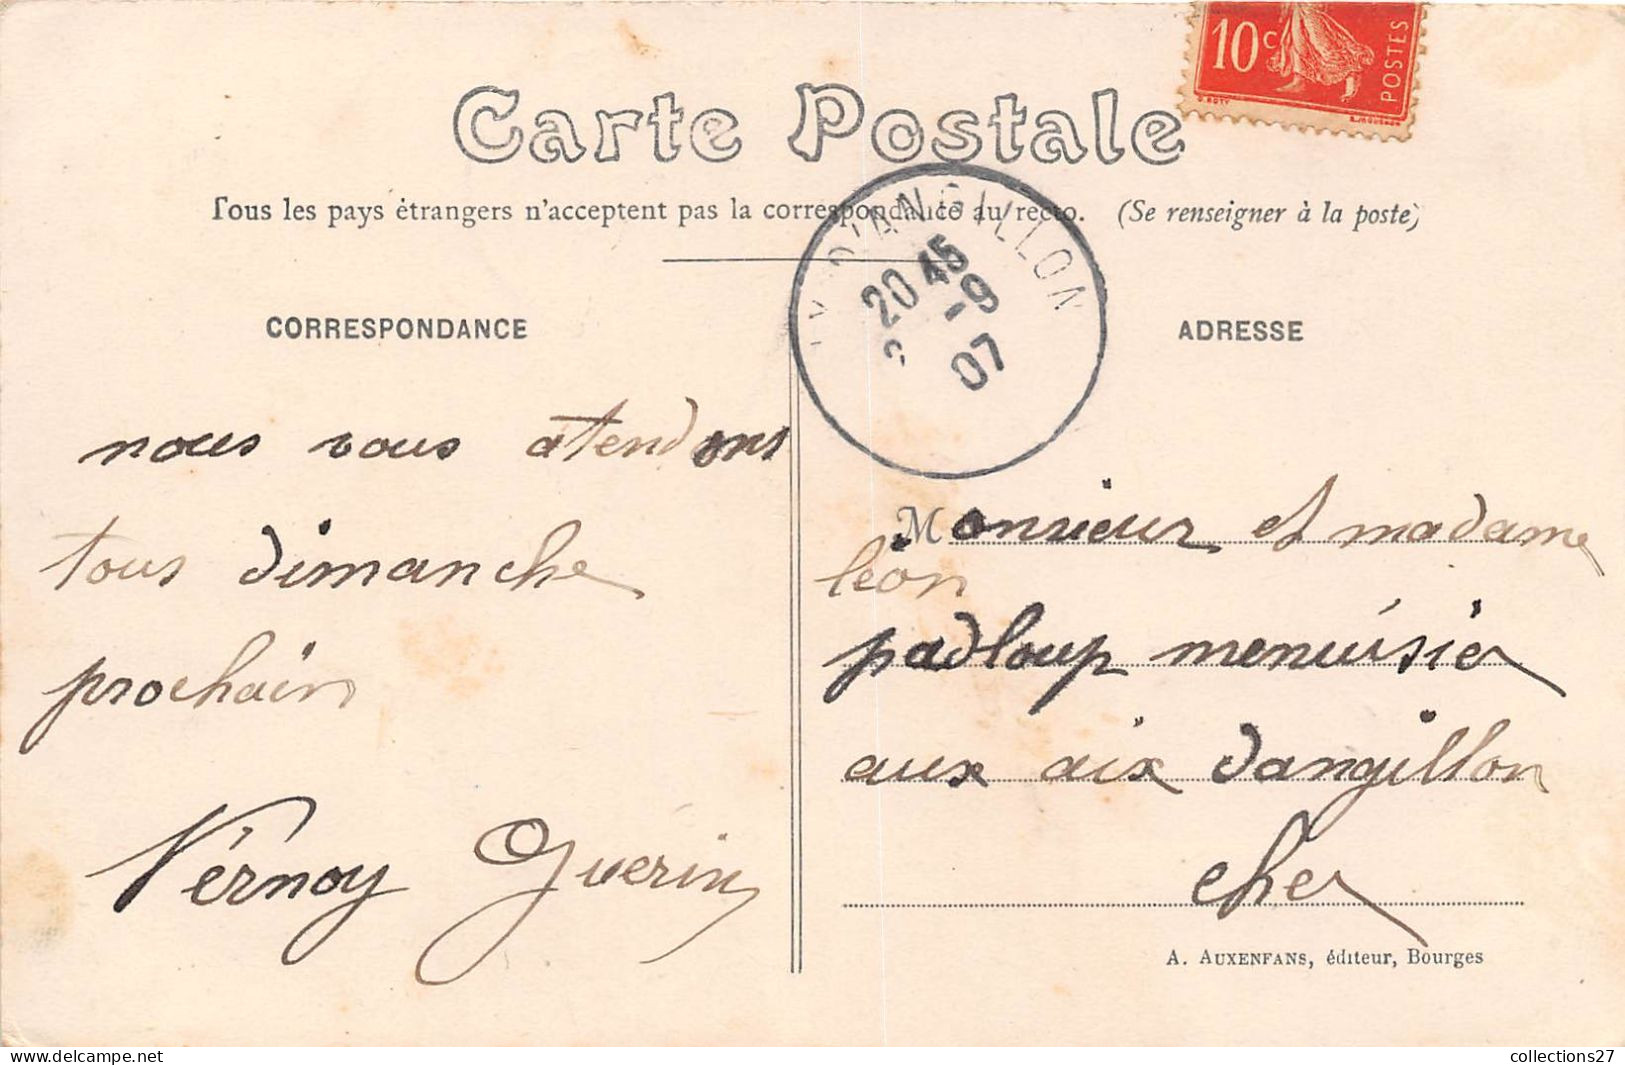 10c
POSTES
Carte Postale
Tous les pays étrangers n'acceptent pas la correspondance au recto. (Se renseigner à la poste)
D'ANGILLON
20 45
-9
07
CORRESPONDANCE
nous vous atendons
tous dimanche
prochain
Vérnoy Guerin
ADRESSE
Monsieur et madame
léon
padloup menuisier
aux aix dangillon
cher
A. AUXENFANS, éditeur, Bourges
collections27